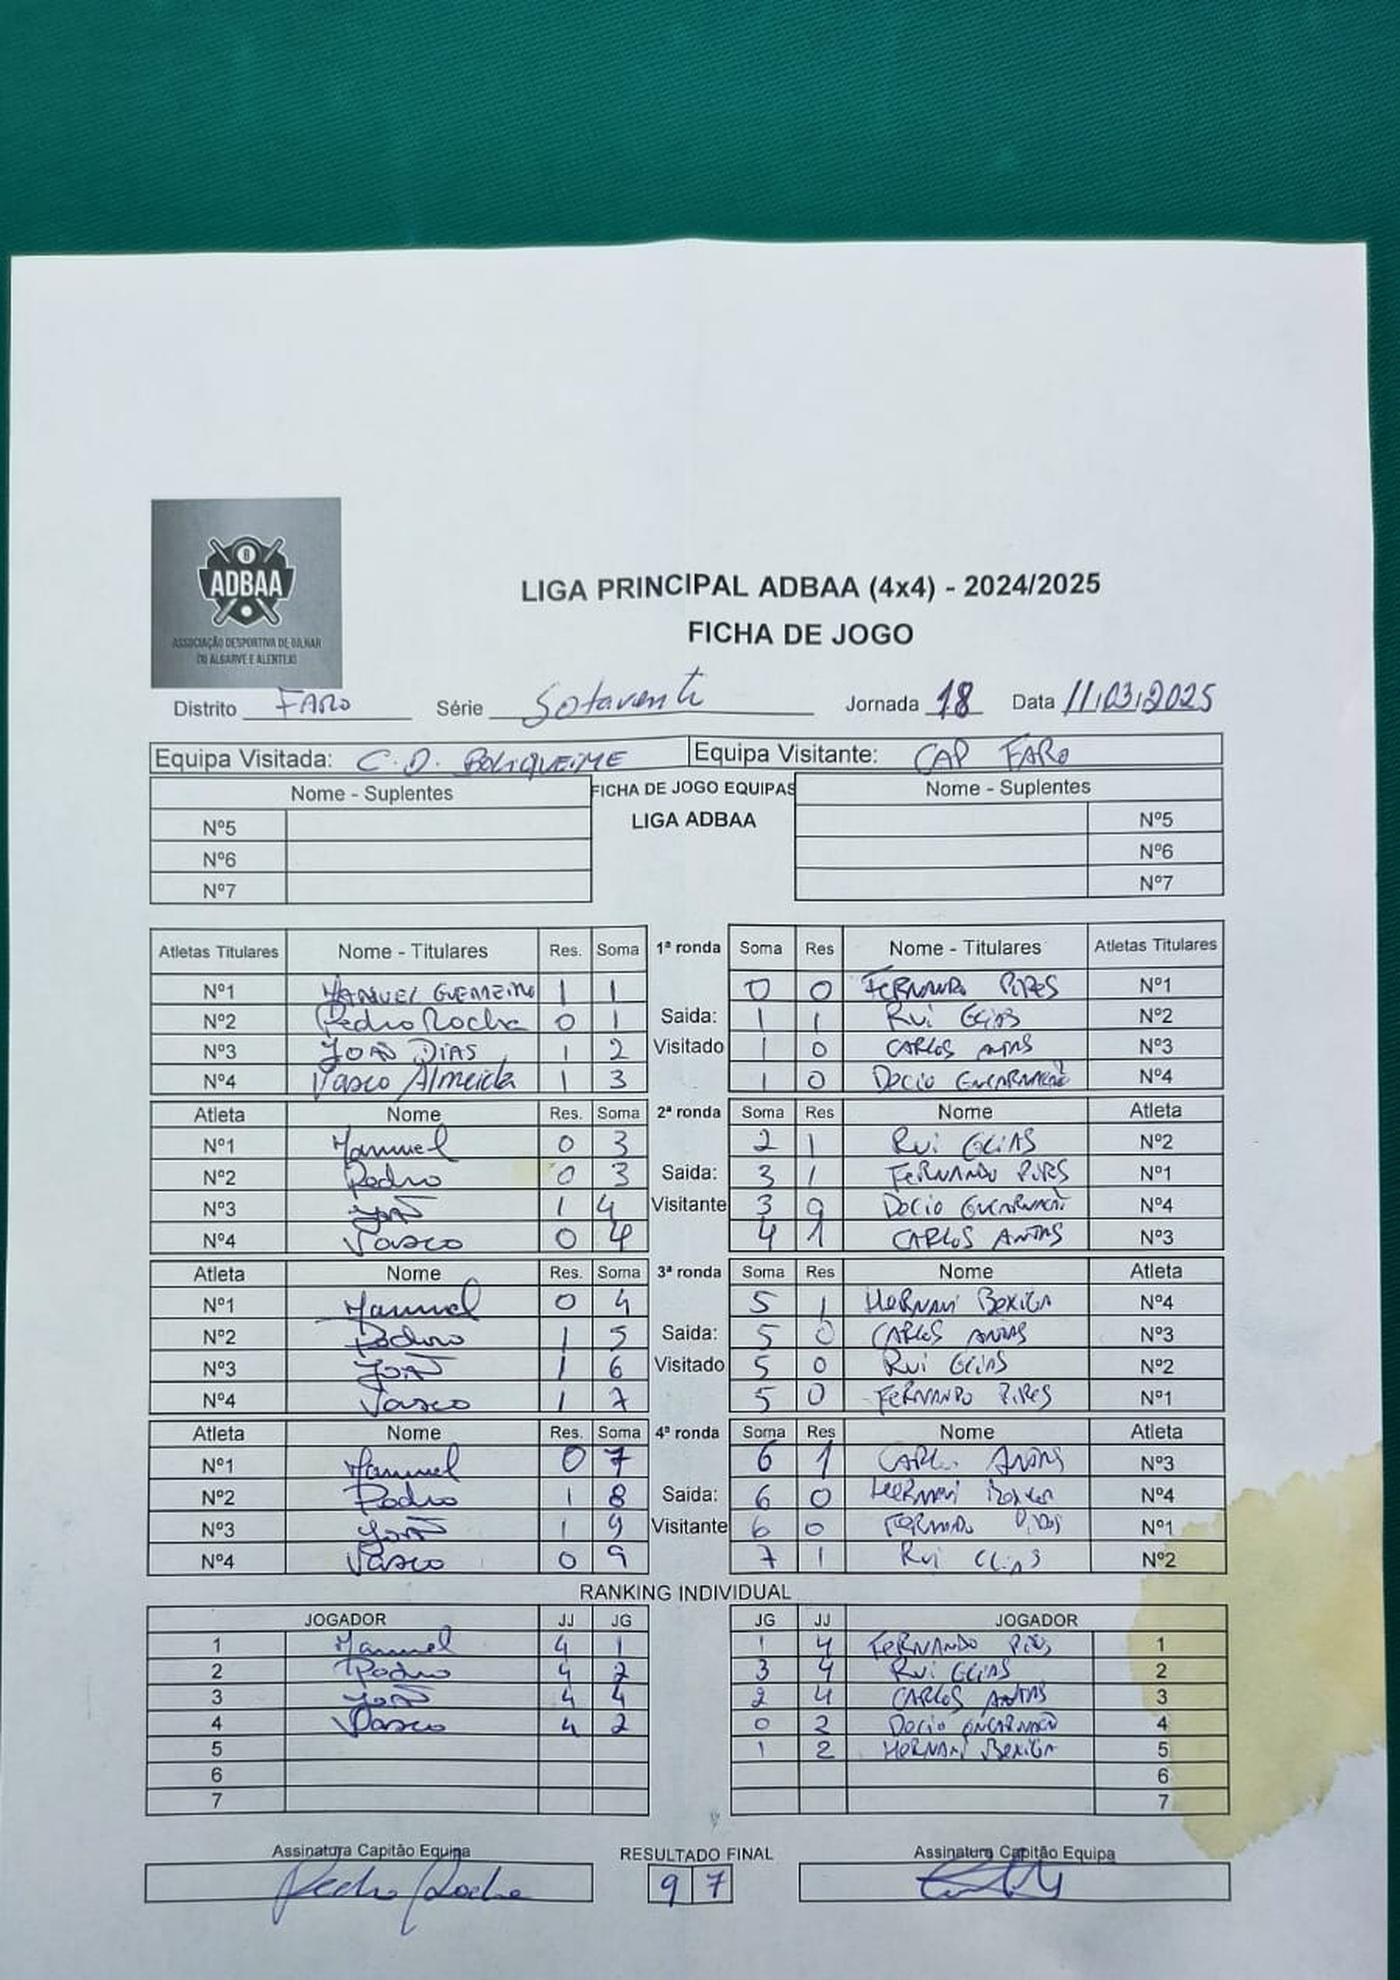 8
ADBAA
ASSOCIAÇÃO DESPORTIVA DE BILHAR
DO ALGARVE E ALENTEJO
LIGA PRINCIPAL ADBAA (4x4) - 2024/2025
FICHA DE JOGO
Distrito FARO Série Sotavento Jornada 18 Data 11/03/2025
Equipa Visitada: C.D. BOLIQUEIME Equipa Visitante: CAP FARO
Nome - Suplentes FICHA DE JOGO EQUIPAS Nome - Suplentes
LIGA ADBAA
Nº5 Nº5
Nº6 Nº6
Nº7 Nº7
Atletas Titulares Nome - Titulares Res. Soma 1ª ronda Soma Res Nome - Titulares Atletas Titulares
Nº1 MANUEL GUERREIRO 1 1 0 0 FERNANDO PIRES Nº1
Nº2 Pedro Rocha 0 1 Saida: 1 1 RUI ELIAS Nº2
Nº3 JOÃO DIAS 1 2 Visitado 1 0 CARLOS ANTAS Nº3
Nº4 Vasco Almeida 1 3 1 0 DECIO ENCARNAÇÃO Nº4
Atleta Nome Res. Soma 2ª ronda Soma Res Nome Atleta
Nº1 Manuel 0 3 2 1 RUI ELIAS Nº2
Nº2 Pedro 0 3 Saida: 3 1 FERNANDO PIRES Nº1
Nº3 JOÃO 1 4 Visitante 3 0 DECIO ENCARNAÇÃO Nº4
Nº4 Vasco 0 4 4 1 CARLOS ANTAS Nº3
Atleta Nome Res. Soma 3ª ronda Soma Res Nome Atleta
Nº1 Manuel 0 4 5 1 HERNANI BEXIGA Nº4
Nº2 Pedro 1 5 Saida: 5 0 CARLOS ANTAS Nº3
Nº3 JOÃO 1 6 Visitado 5 0 RUI ELIAS Nº2
Nº4 Vasco 1 7 5 0 FERNANDO PIRES Nº1
Atleta Nome Res. Soma 4ª ronda Soma Res Nome Atleta
Nº1 Manuel 0 7 6 1 CARLOS ANTAS Nº3
Nº2 Pedro 1 8 Saida: 6 0 HERNANI BEXIGA Nº4
Nº3 JOÃO 1 9 Visitante 6 0 FERNANDO PIRES Nº1
Nº4 Vasco 0 9 7 1 RUI ELIAS Nº2
RANKING INDIVIDUAL
JOGADOR JJ JG JG JJ JOGADOR
1 Manuel 4 1 1 4 FERNANDO PIRES 1
2 Pedro 4 2 3 4 RUI ELIAS 2
3 JOÃO 4 4 2 4 CARLOS ANTAS 3
4 Vasco 4 2 0 2 DECIO ENCARNAÇÃO 4
5 1 2 HERNANI BEXIGA 5
6 6
7 7
Assinatura Capitão Equipa RESULTADO FINAL Assinatura Capitão Equipa
Pedro Rocha 9 7